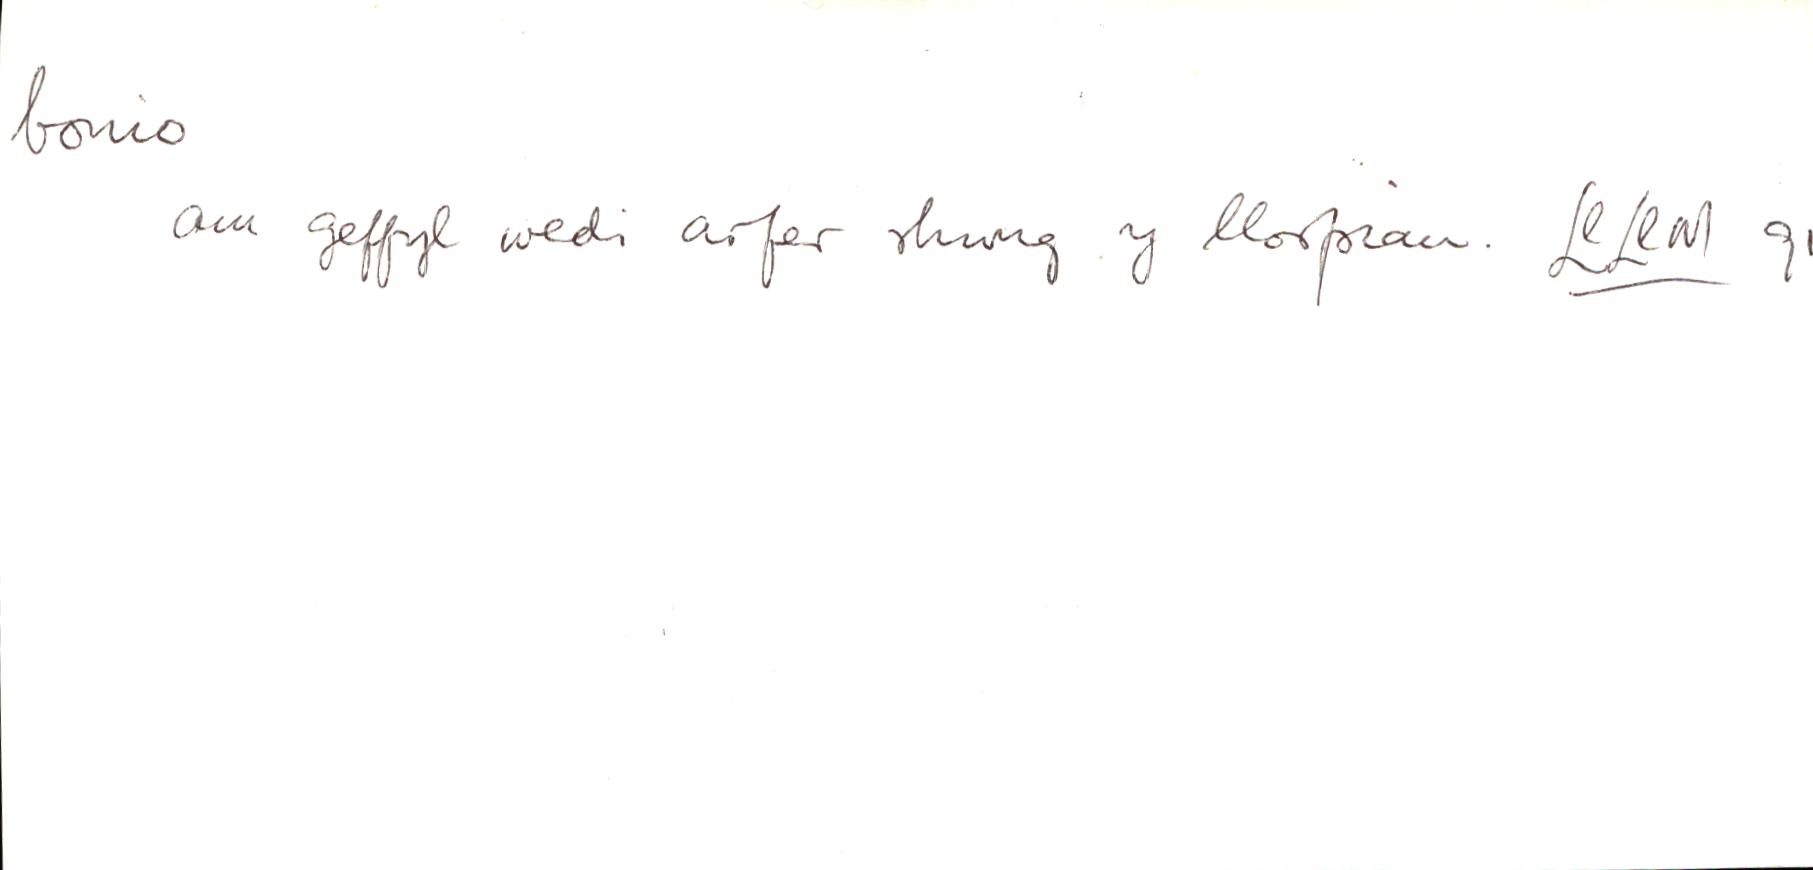 bonio
am geffyl wedi arfer rhwng y llorpiau. LlLlM 91